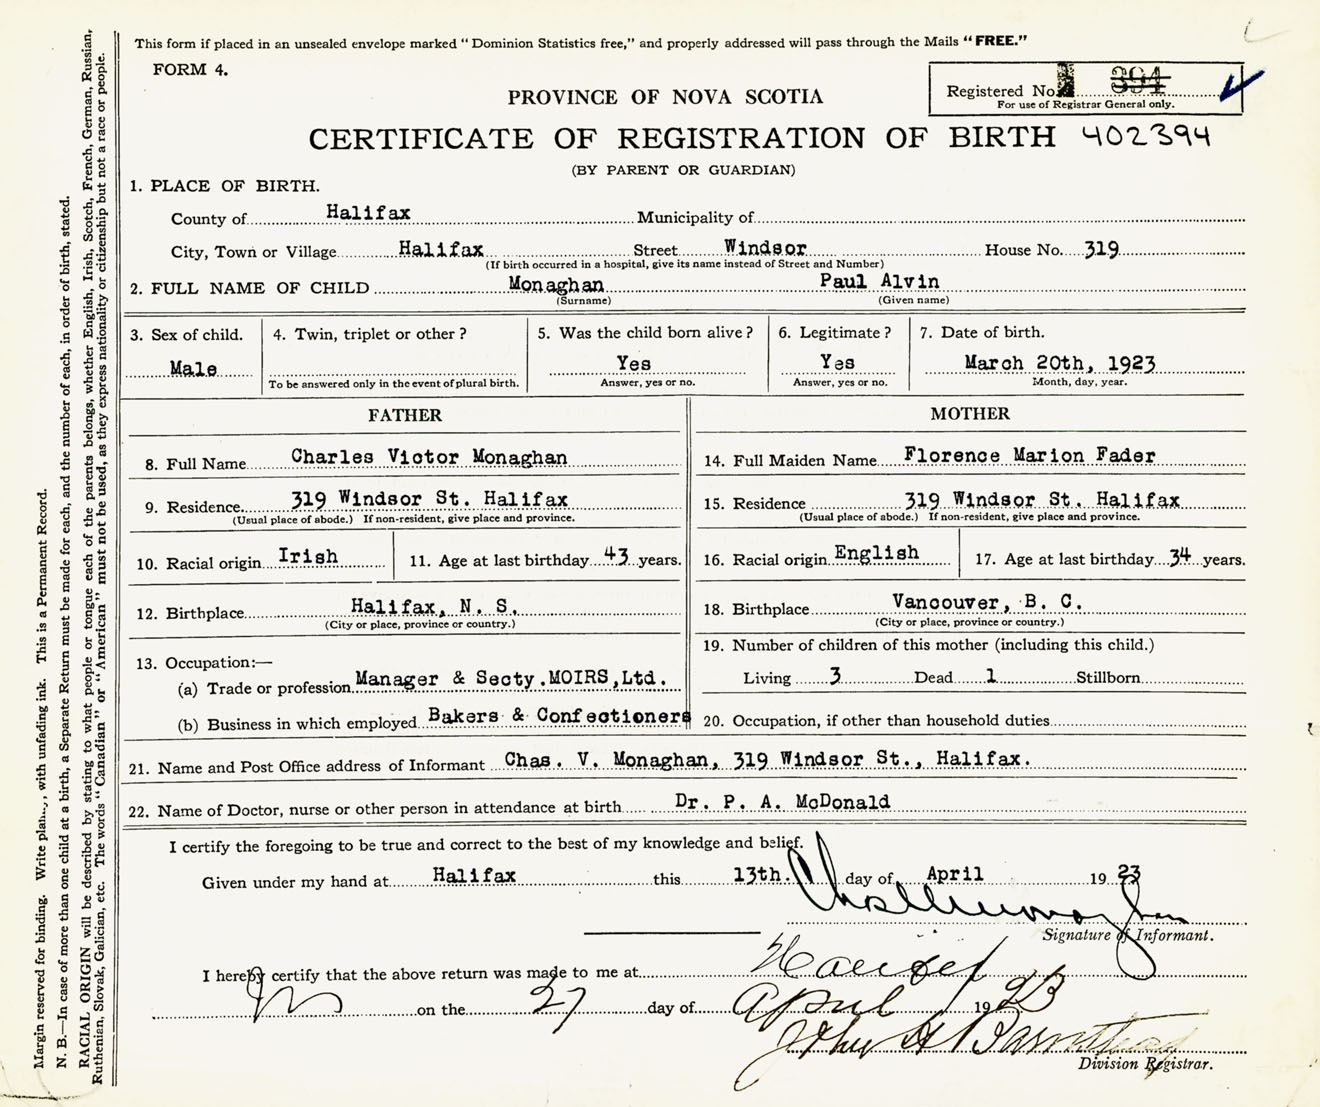 This form if placed in an unsealed envelope marked "Dominion Statistics free," and properly addressed will pass through the Mails "FREE."
FORM 4.
Registered No. 394
For use of Registrar General only.
PROVINCE OF NOVA SCOTIA
CERTIFICATE OF REGISTRATION OF BIRTH 402394
(BY PARENT OR GUARDIAN)
1. PLACE OF BIRTH.
County of Halifax Municipality of
City, Town or Village Halifax Street Windsor House No. 319
(If birth occurred in a hospital, give its name instead of Street and Number)
2. FULL NAME OF CHILD Monaghan Paul Alvin
(Surname) (Given name)
3. Sex of child. 4. Twin, triplet or other? 5. Was the child born alive? 6. Legitimate? 7. Date of birth.
Male Yes Yes March 20th, 1923
To be answered only in the event of plural birth. Answer, yes or no. Answer, yes or no. Month, day, year.
FATHER MOTHER
8. Full Name Charles Victor Monaghan
14. Full Maiden Name Florence Marion Fader
9. Residence. 319 Windsor St. Halifax
(Usual place of abode.) If non-resident, give place and province.
15. Residence 319 Windsor St. Halifax
(Usual place of abode.) If non-resident, give place and province.
10. Racial origin Irish 11. Age at last birthday 43 years.
16. Racial origin English 17. Age at last birthday 34 years.
12. Birthplace Halifax, N. S.
(City or place, province or country.)
18. Birthplace Vancouver, B. C.
(City or place, province or country.)
13. Occupation:—
(a) Trade or profession Manager & Secty. MOIRS, Ltd.
(b) Business in which employed Bakers & Confectioners
19. Number of children of this mother (including this child.)
Living 3 Dead 1 Stillborn
20. Occupation, if other than household duties
21. Name and Post Office address of Informant Chas. V. Monaghan, 319 Windsor St., Halifax.
22. Name of Doctor, nurse or other person in attendance at birth Dr. P. A. McDonald
I certify the foregoing to be true and correct to the best of my knowledge and belief.
Given under my hand at Halifax this 13th. day of April 1923
Chas V Monaghan
Signature of Informant.
I hereby certify that the above return was made to me at Halifax
on the 27 day of April 1923
John H Barnstead
Division Registrar.
Margin reserved for binding. Write , with unfading ink. This is a Permanent Record.
N. B.—In case of more than one child at a birth, a Separate Return must be made for each, and the number of each, in order of birth, stated.
RACIAL ORIGIN will be described by stating to what people or tongue each of the parents belongs, whether English, Irish, Scotch, French, German, Russian,
Ruthenian, Slovak, Galician, etc. The words "Canadian" or "American" must not be used, as they express nationality or citizenship but not a race or people.